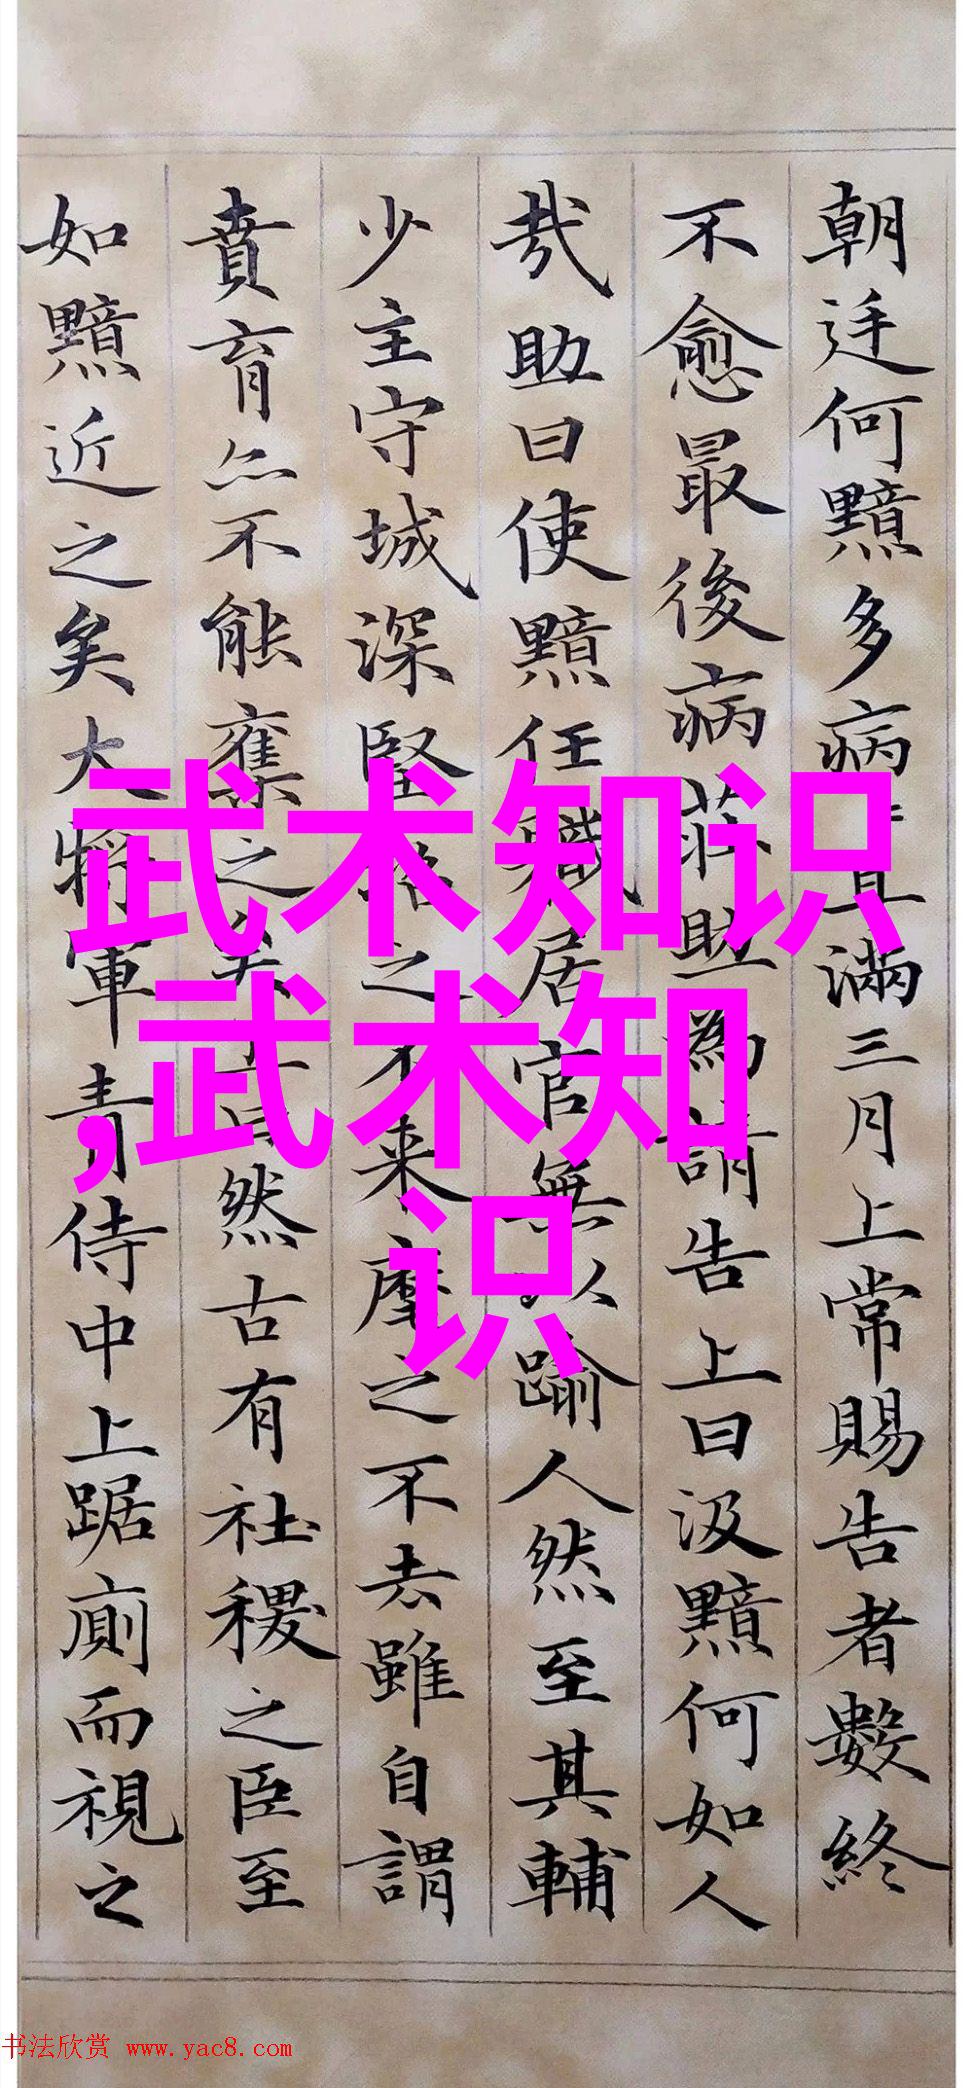 朝廷何黯多病且滿三月上常賜告者數終
不愈最後病莊助為請告上曰汲黯何如人
哉助曰使黯任職居官無以踰人然至其輔
少主守城深堅招之不来摩之不去雖自謂
賁育亦不能奪之矣上曰然古有社稷之臣至
如黯近之矣大將軍青侍中上踞廁而視之
武术知识
,武术知
识
书法欣赏 www.yac8.com